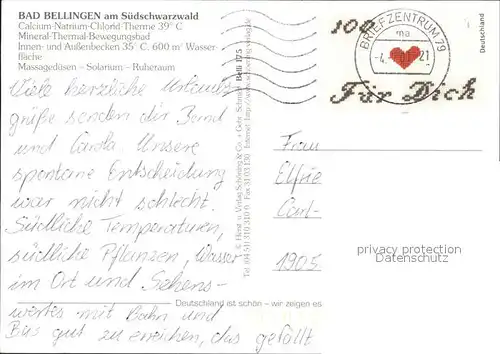 BAD BELLINGEN am Südschwarzwald
Calcium-Natrium-Chlorid-Therme 39° C
Mineral-Thermal-Bewegungsbad
Innen- und Außenbecken 35° C. 600 m² Wasser-
fläche
Massagedüsen – Solarium – Ruheraum
Viele herzliche Urlaubs-
grüße senden dir Bernd
und Carola. Unsere
spontane Entscheidung
war nicht schlecht.
Südliche Temperaturen,
südliche Pflanzen, Wasser
im Ort und Sehens-
wertes mit Bahn und
Bus gut zu erreichen, das gefällt
Deutschland ist schön – wir zeigen es
Bell 175
100
Deutschland
BRIEFZENTRUM 79
ma
21
Für Dich
Frau
Elfrie
Carl-
1905
privacy protection
Datenschutz